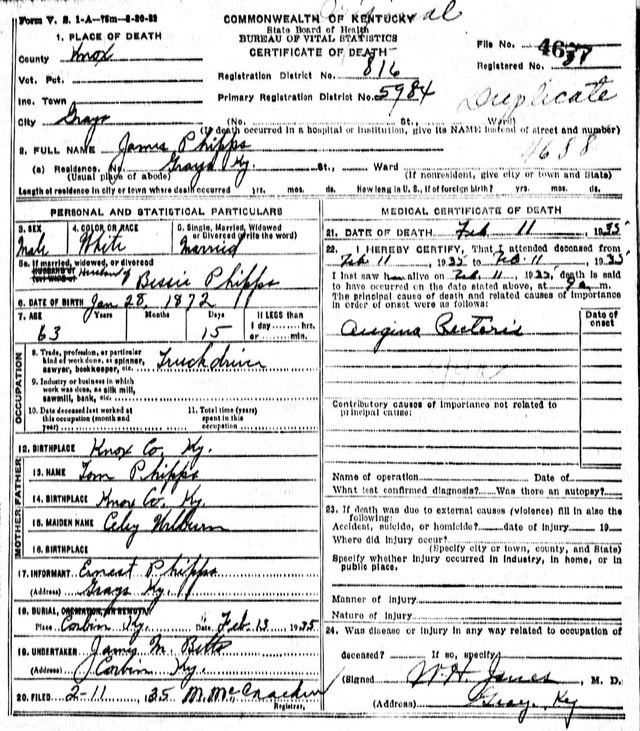 Form V. S. 1-A—75m—8-30-32
COMMONWEALTH OF KENTUCKY
State Board of Health
BUREAU OF VITAL STATISTICS
CERTIFICATE OF DEATH
1. PLACE OF DEATH
County Knox
Vot. Pct.
Inc. Town
City Grays
File No.
Registered No.
Duplicate
4688
Registration District No. 816
Primary Registration District No. 5984
(No. St., Ward)
(If death occurred in a hospital or institution, give its NAME instead of street and number)
2. FULL NAME James Phipps
(a) Residence. No. Grays Ky. St., Ward
(Usual place of abode) (If nonresident, give city or town and State)
Length of residence in city or town where death occurred yrs. mos. ds. How long in U. S., if of foreign birth? yrs. mos. ds.
PERSONAL AND STATISTICAL PARTICULARS
3. SEX Male
4. COLOR OR RACE White
5. Single, Married, Widowed or Divorced (write the word) Married
5a. If married, widowed, or divorced
HUSBAND of Husband of Bessie Phipps
(or) WIFE of
6. DATE OF BIRTH Jan 28, 1872
7. AGE Years Months Days If LESS than
63 15 1 day hrs. or min.
OCCUPATION
8. Trade, profession, or particular kind of work done, as spinner, sawyer, bookkeeper, etc. Truck driver
9. Industry or business in which work was done, as silk mill, sawmill, bank, etc.
10. Date deceased last worked at this occupation (month and year)
11. Total time (years) spent in this occupation
12. BIRTHPLACE Knox Co, Ky.
FATHER
13. NAME Tom Phipps
14. BIRTHPLACE Knox Co, Ky.
MOTHER
15. MAIDEN NAME Celey Wilburn
16. BIRTHPLACE
17. INFORMANT Ernest Phipps
(Address) Grays Ky.
18. BURIAL, CREMATION, OR REMOVAL
Place Corbin Ky. Date Feb. 13 1935
19. UNDERTAKER James M. Betts
(Address) Corbin Ky.
20. FILED 2-11, 35 M. McCracken
Registrar.
MEDICAL CERTIFICATE OF DEATH
21. DATE OF DEATH Feb 11, 1935
22. I HEREBY CERTIFY, That I attended deceased from
Feb 11, 1935 to Feb. 11, 1935
I last saw h alive on Feb. 11, 1935, death is said
to have occurred on the date stated above, at 9 a m.
The principal cause of death and related causes of importance in order of onset were as follows:
Date of onset
Augina Pectoris
Contributory causes of importance not related to principal cause:
Name of operation Date of
What test confirmed diagnosis? Was there an autopsy?
23. If death was due to external causes (violence) fill in also the following:
Accident, suicide, or homicide? date of injury 19
Where did injury occur?
(Specify city or town, county, and State)
Specify whether injury occurred in industry, in home, or in public place.
Manner of injury
Nature of injury
24. Was disease or injury in any way related to occupation of
deceased? If so, specify
(Signed W. H. Jones, M. D.
(Address) Gray, Ky